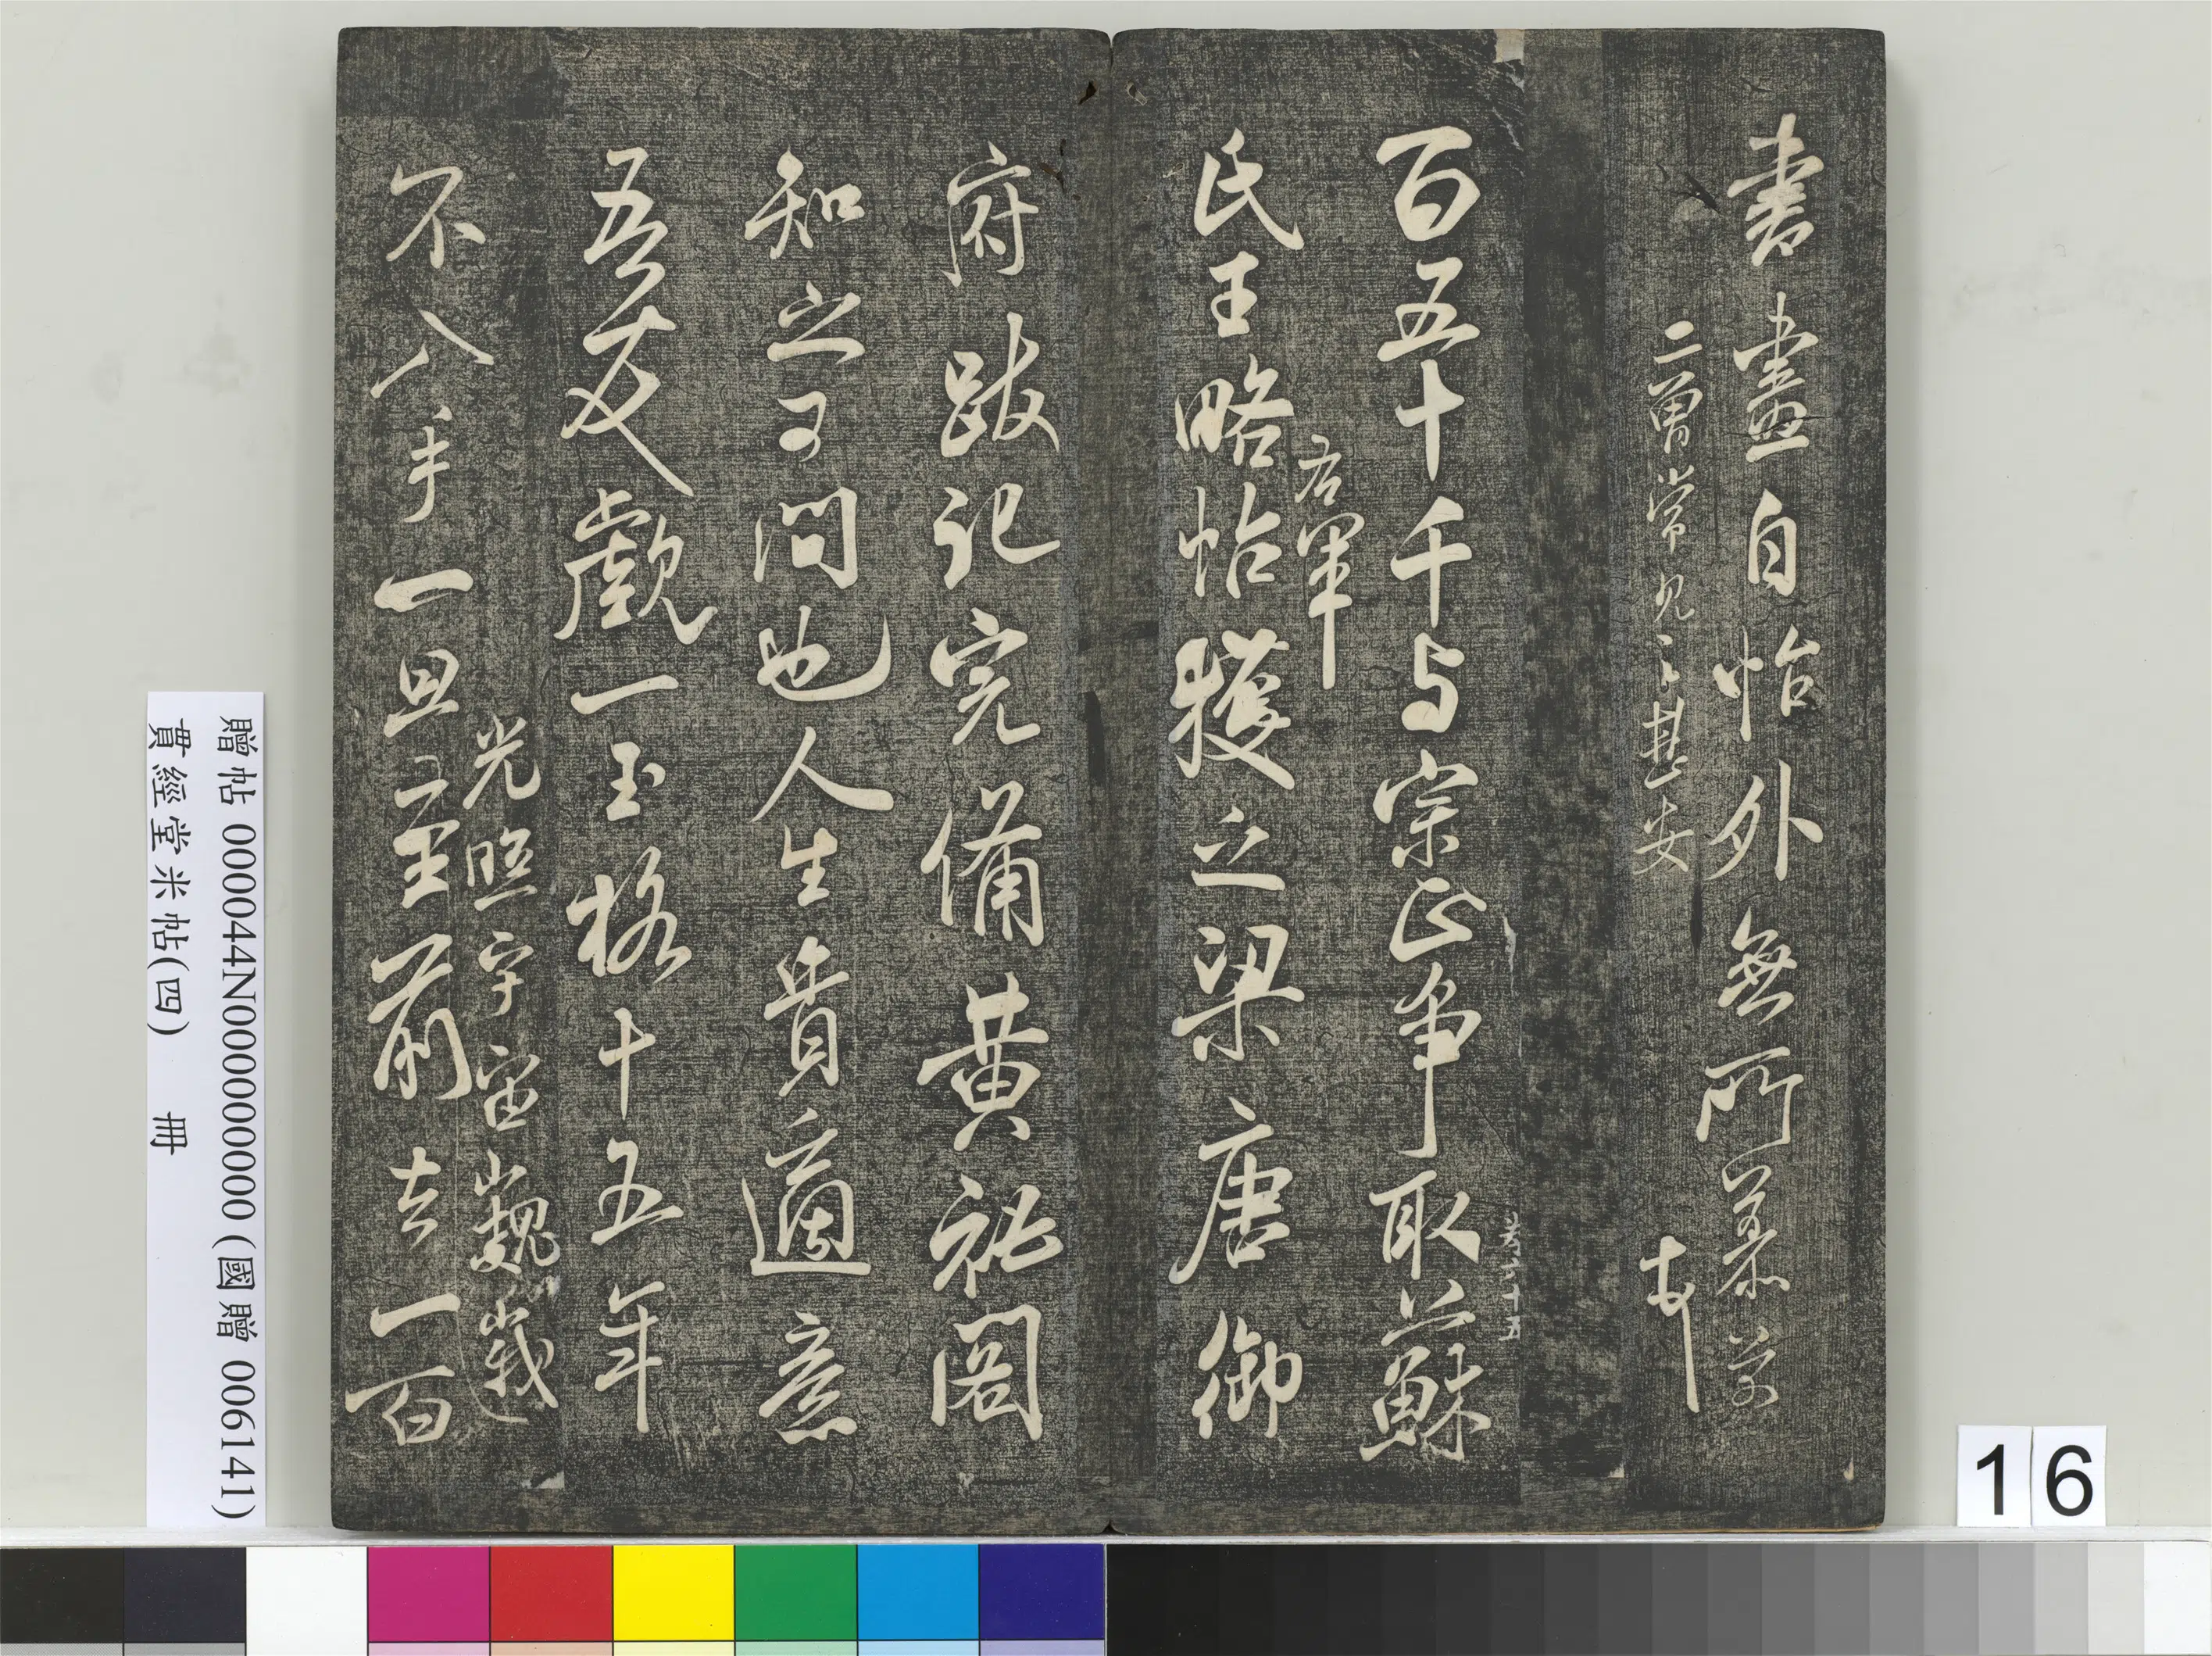 書畫自怡外無所慕芾
二曾常見之甚安
芾
百五十千与宗正爭取蘇
氏王略帖獲之梁唐御
右軍
府跋記完備黃祕閣
知之可問也人生貴適意
吾友覷一玉格十五年
不入手一旦光照宇宙巍峩
之至前去一百
贈帖 000044N000000000 (國贈 006141)
貫經堂米帖(四) 冊
16